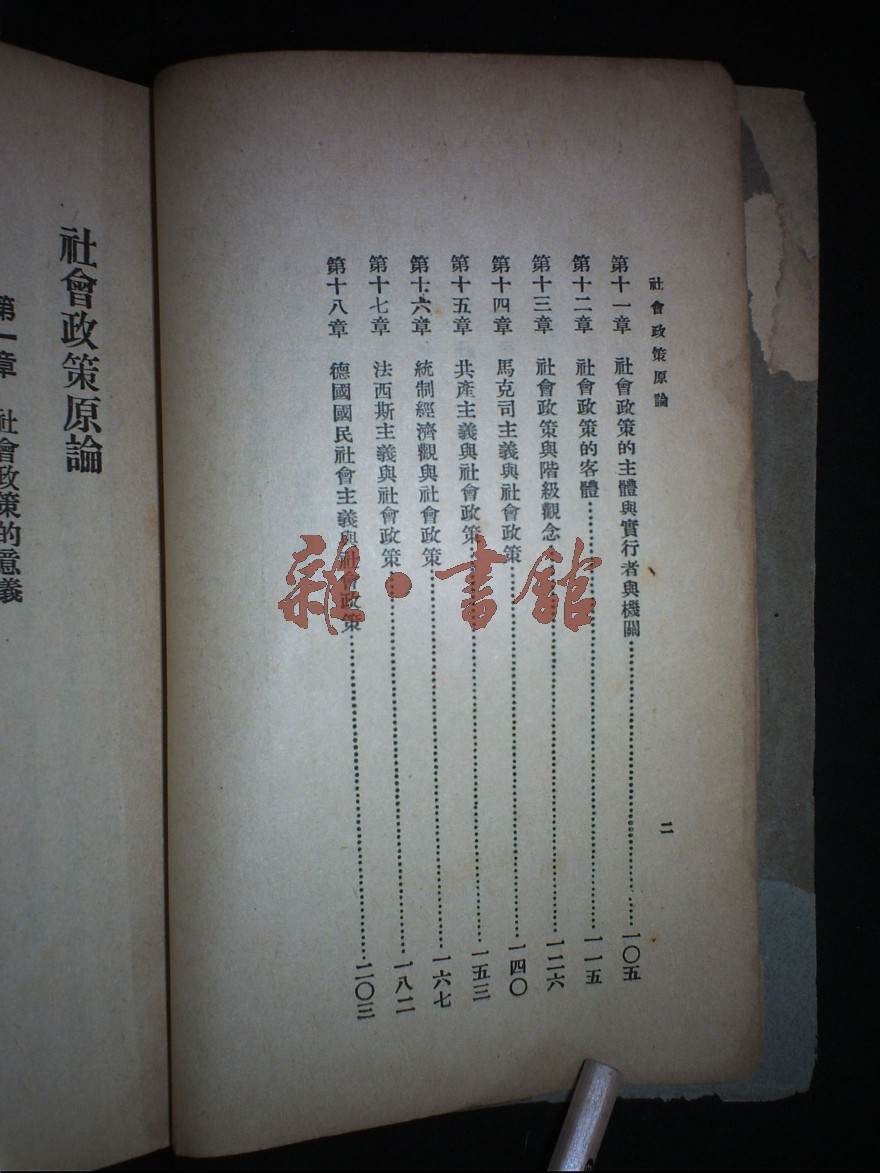 社會政策原論
二
第十一章　社會政策的主體與實行者與機關……一〇五
第十二章　社會政策的客體……一一五
第十三章　社會政策與階級觀念……一二六
第十四章　馬克司主義與社會政策……一四〇
第十五章　共產主義與社會政策……一五三
第十六章　統制經濟觀與社會政策……一六七
第十七章　法西斯主義與社會政策……一八二
第十八章　德國國民社會主義與社會政策……二〇三
社會政策原論
第一章　社會政策的意義
雜·書館